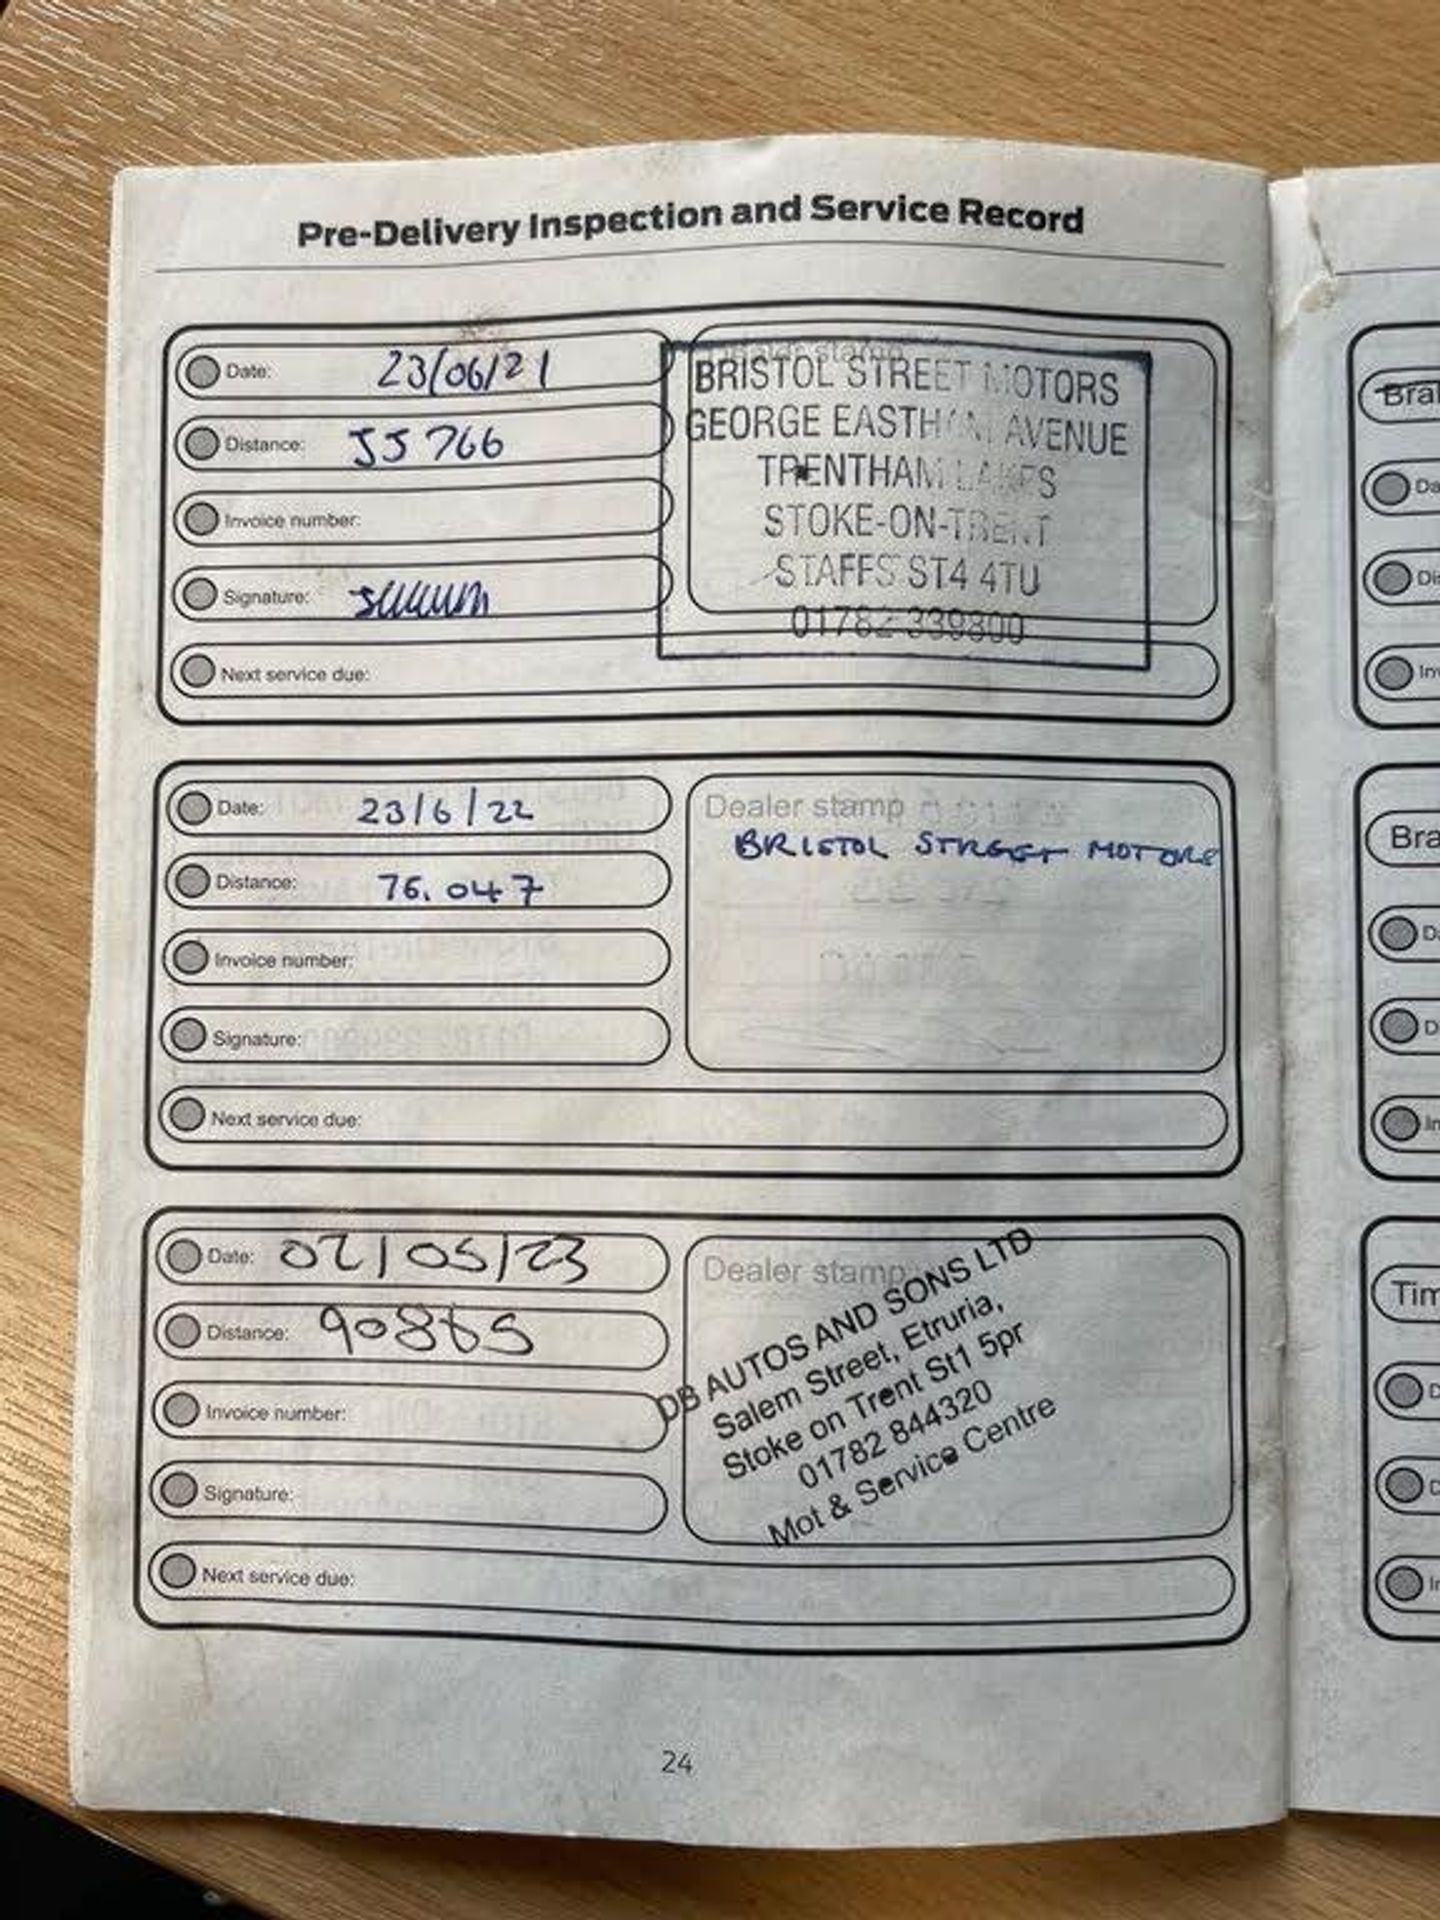 Pre-Delivery Inspection and Service Record
Date: 23/06/21
Distance: 55 766
Invoice number:
Signature:
Next service due:
Dealer stamp
BRISTOL STREET MOTORS
GEORGE EASTHAM AVENUE
TRENTHAM LAKES
STOKE-ON-TRENT
STAFFS ST4 4TU
01782 339300
Date: 23/6/22
Distance: 76.047
Invoice number:
Signature:
Next service due:
Dealer stamp
BRISTOL STREET MOTORS
Date: 02/05/23
Distance: 90885
Invoice number:
Signature:
Next service due:
Dealer stamp
DB AUTOS AND SONS LTD
Salem Street, Etruria,
Stoke on Trent St1 5pr
01782 844320
Mot & Service Centre
24
Bra
Tim